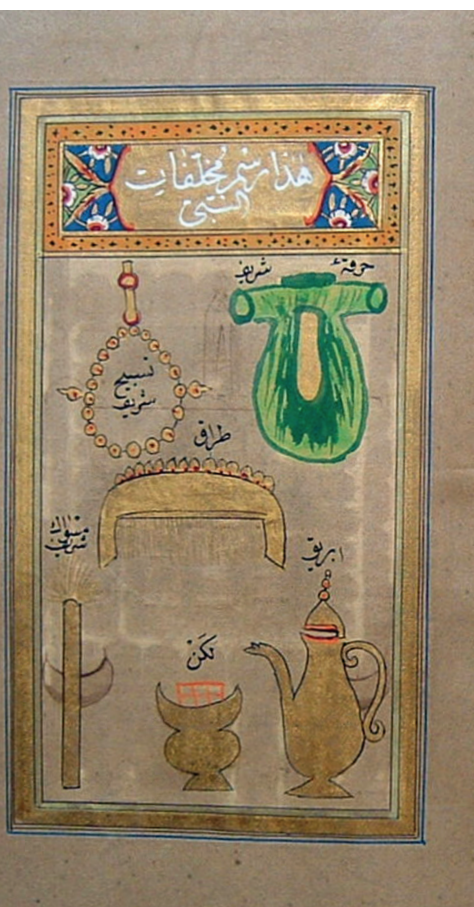 هذا رسم مخلفات
النبي
خرقهٔ شريف
تسبيح
شريف
طراق
مسواك
شريف
ابريق
لكن